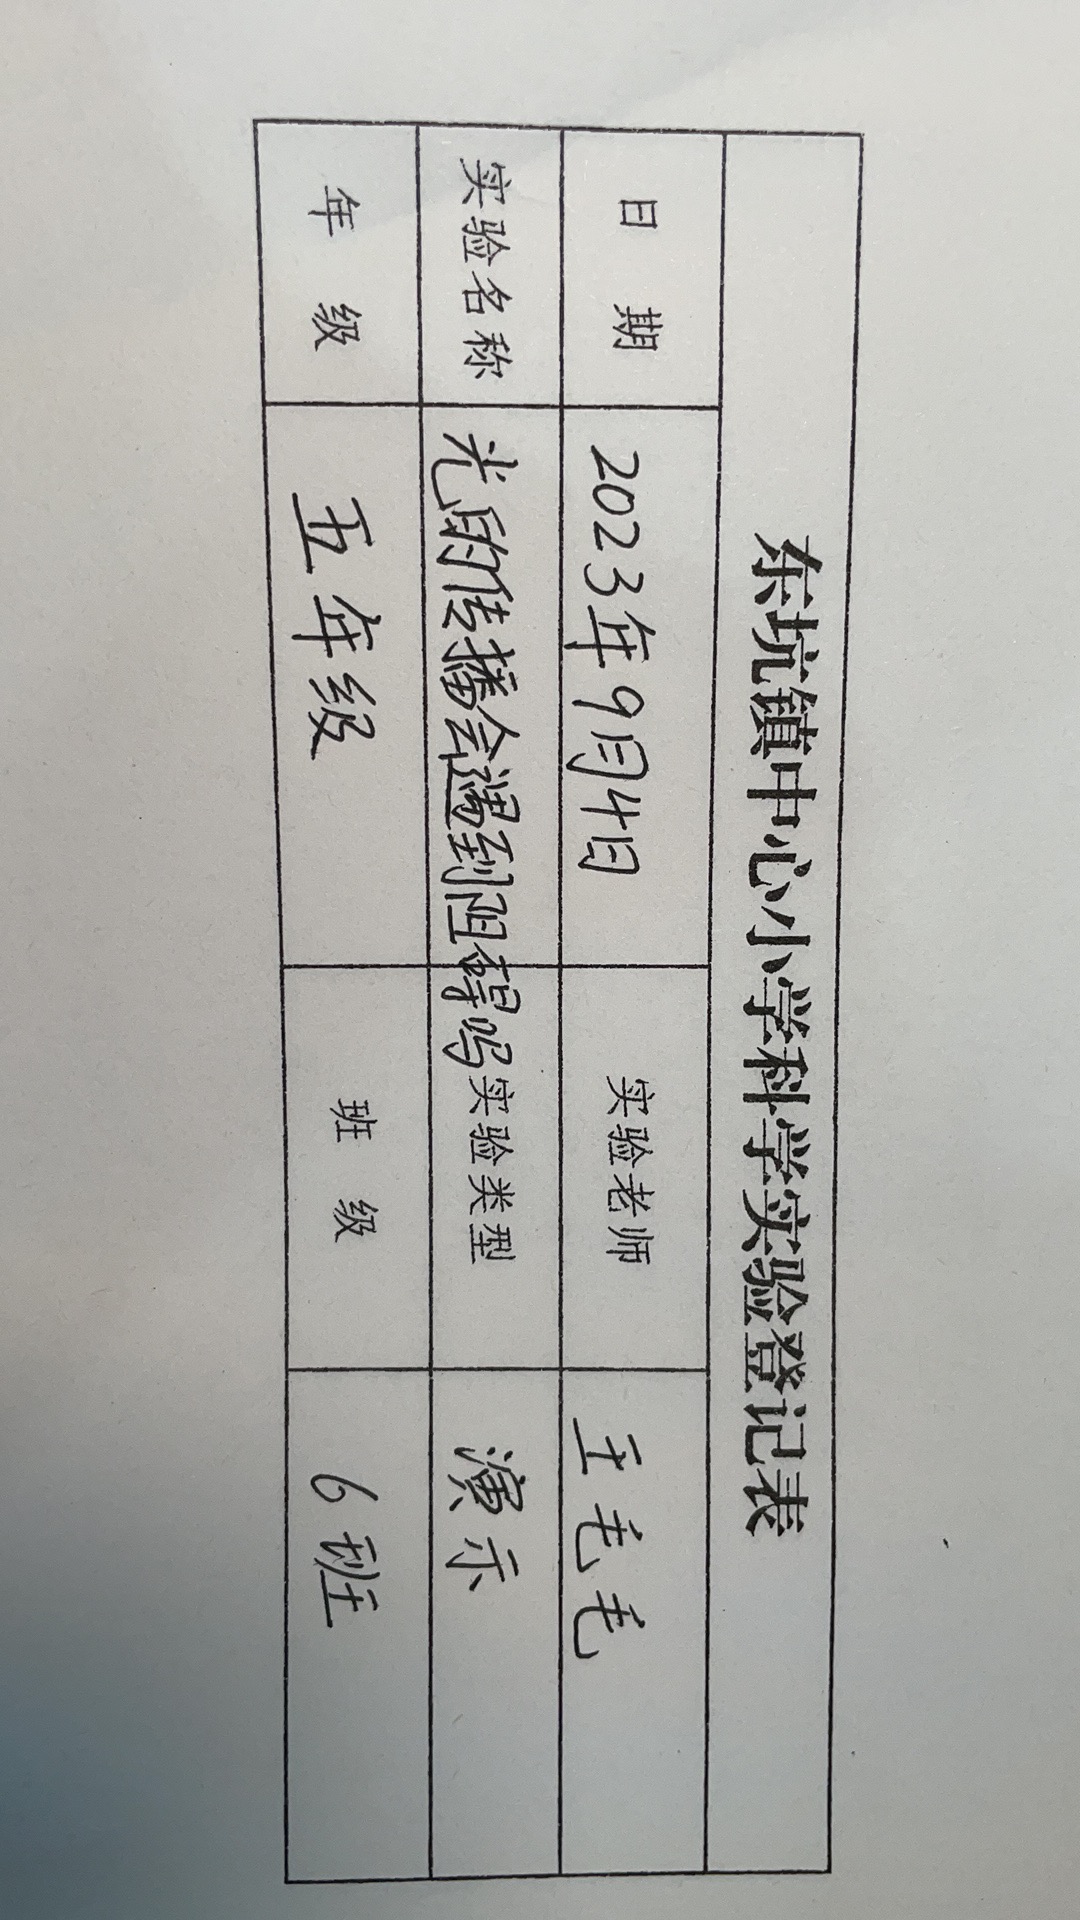 东坑镇中心小学科学实验登记表
日 期 2023年9月4日 实验老师 王毛毛
实验名称 光的传播会遇到阻碍吗 实验类型 演示
年 级 五年级 班 级 6班